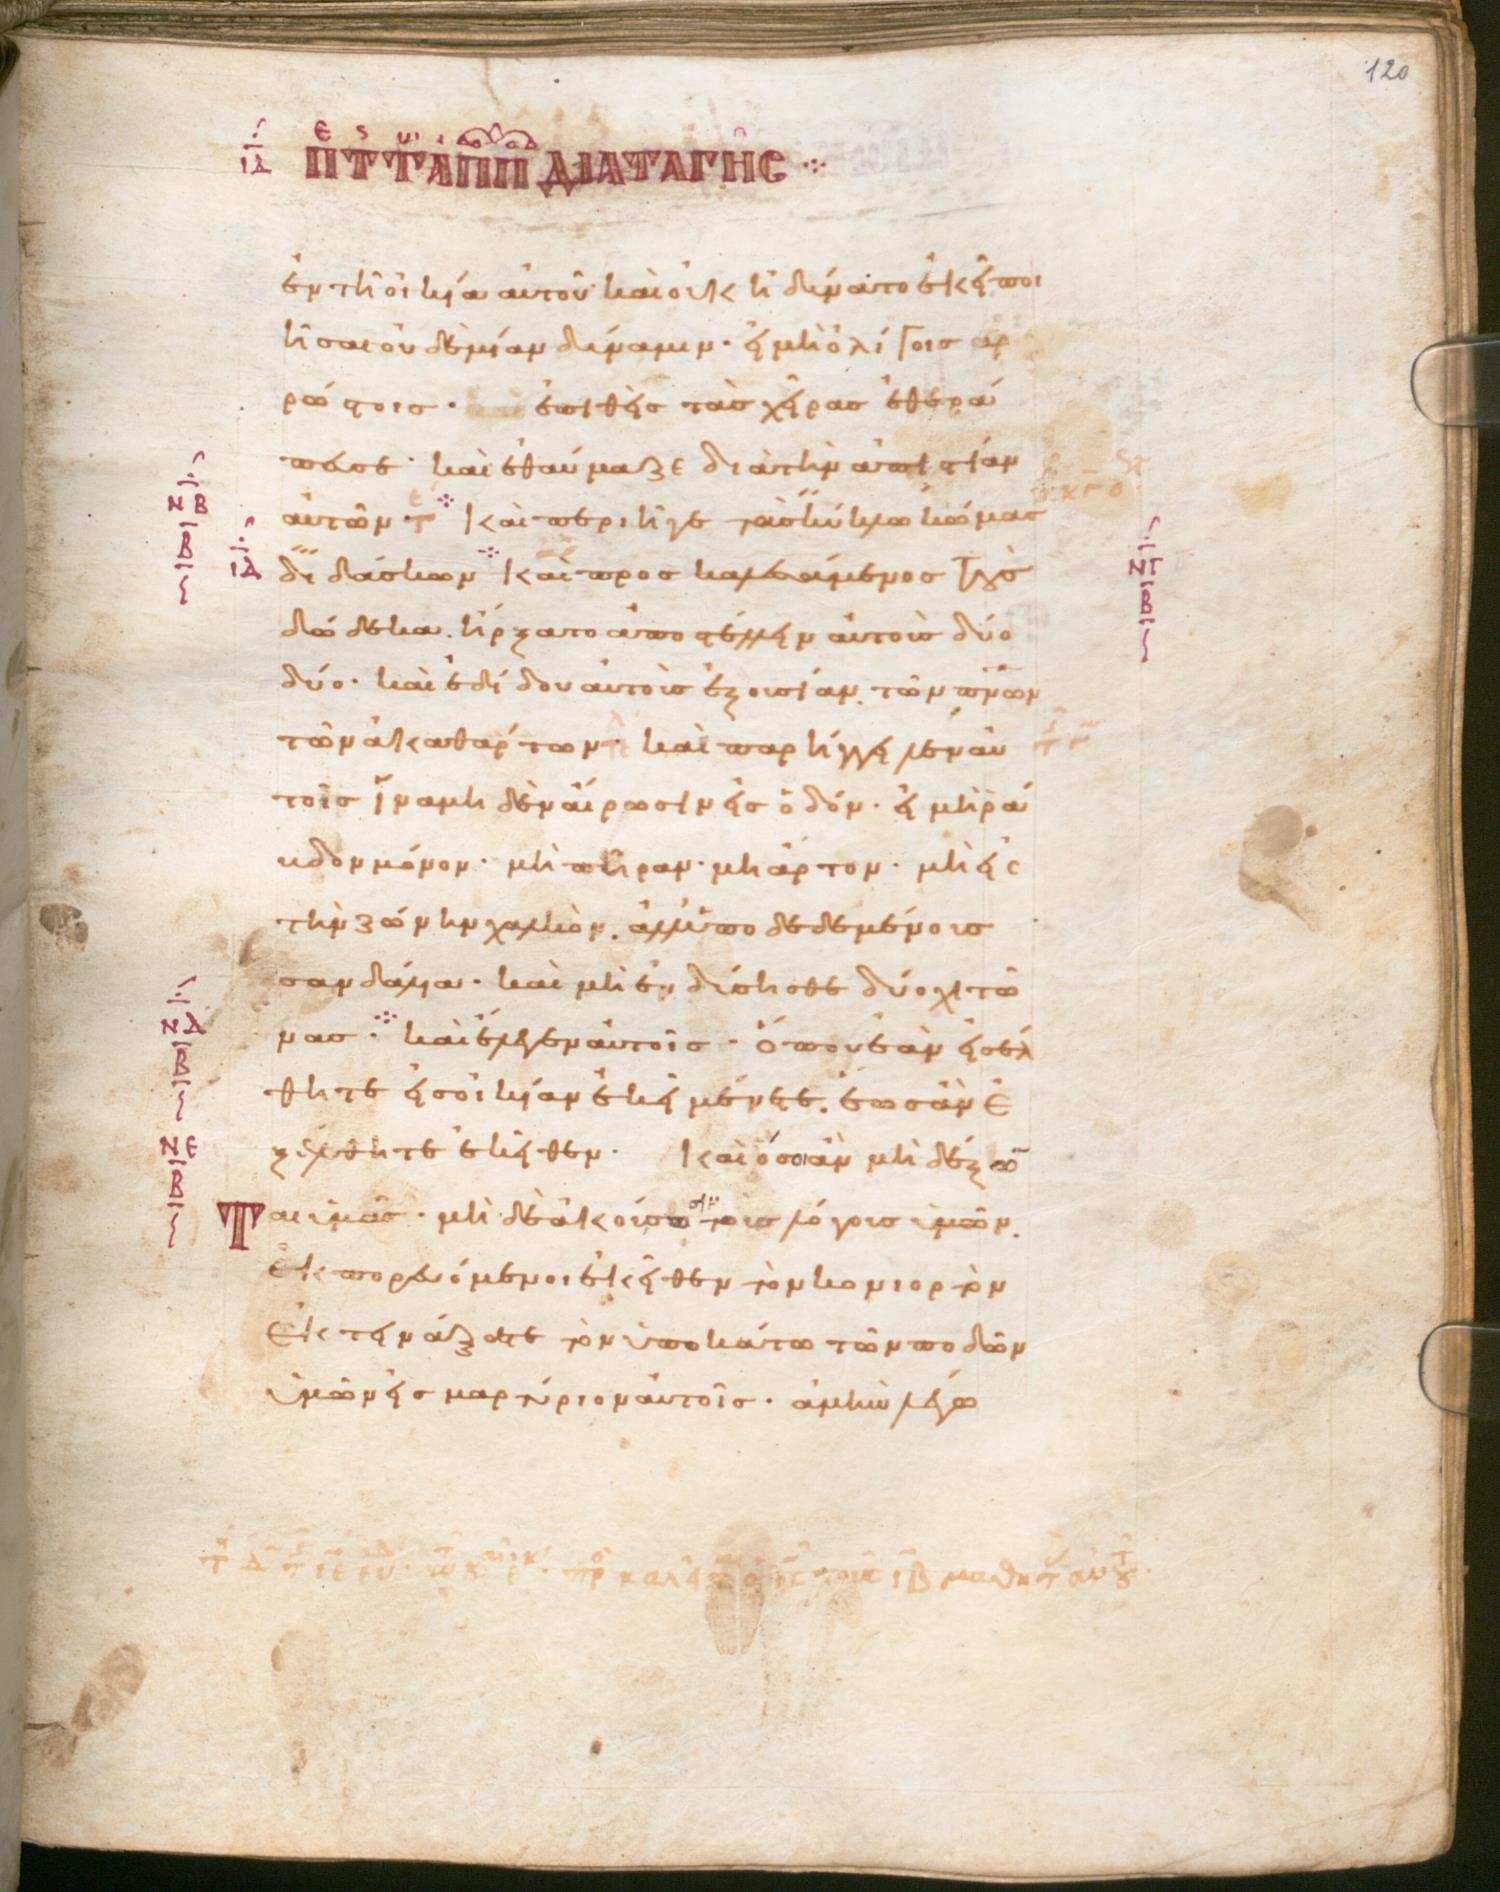 ΙΔ ΠΕ Τς Τ ΑΠΠ ΔΙΑΤΑΓΗΣ
ἐν τῆ οἰκία αὐτοῦ· καὶ οὐκ ἠδύνατο ἐκεῖ ποι
ῆσαι οὐδεμίαν δύναμιν· εἰ μὴ ὀλίγοις ἀρ
ρώστοις· ἐπιθεὶς τὰς χεῖρας ἐθερά
πευσε· καὶ ἐθαύμαζε διὰ τὴν ἀπιστίαν
ΝΒ Β αὐτῶν· Καὶ περιῆγε τὰς κύκλω κώμας
ΙΔ διδάσκων Καὶ προσκαλεσάμενος τοὺς ΝΓ Β
δώδεκα. ἤρξατο ἀποστέλλειν αὐτοὺς δύο
δύο· καὶ ἐδίδου αὐτοῖς ἐξουσίαν. τῶν πνων
τῶν ἀκαθάρτων· καὶ παρήγγειλεν αὐ
τοῖς ἵνα μηδὲν αἴρωσιν εἰς ὁδόν· εἰ μὴ ῥά
βδον μόνον· μὴ πήραν· μὴ ἄρτον· μὴ εἰς
τὴν ζώνην χαλκὸν. ἀλλ' ὑποδεδεμένους
σανδάλια· καὶ μὴ ἐνδύσησθε δύο χιτῶ
ΝΔ Β νας· καὶ ἔλεγεν αὐτοῖς· ὅπου ἐὰν εἰσέλ
θητε εἰς οἰκίαν ἐκεῖ μένετε. ἕως ἂν ἐ
ΝΕ Β ξέλθητε ἐκεῖθεν· Καὶ ὅσοι ἂν μὴ δέξω
Ται ὑμᾶς· μὴ δὲ ἀκούσωσιν τοὺς λόγους ὑμῶν.
ἐκπορευόμενοι ἐκεῖθεν τὸν κονιορτὸν
ἐκτινάξατε τὸν ὑποκάτω τῶν ποδῶν
ὑμῶν εἰς μαρτύριον αὐτοῖς· ἀμὴν λέγω
120